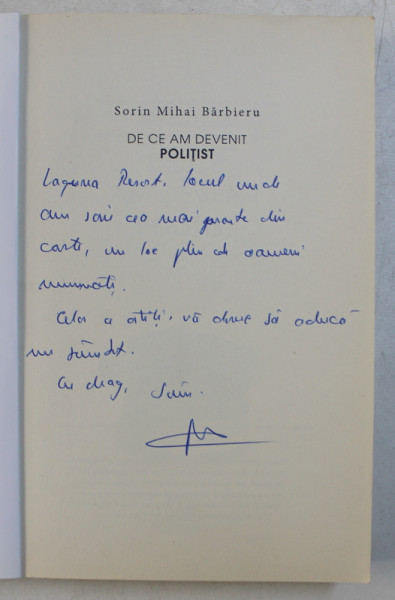 Sorin Mihai Bărbieru
DE CE AM DEVENIT
POLIȚIST
Laguna Resort, locul unde
am scris cea mai parte din
carte, un loc plin de oameni
minunați.
Celor a citiți, vă doresc să aducă
un zâmbet.
Cu drag, Sorin.